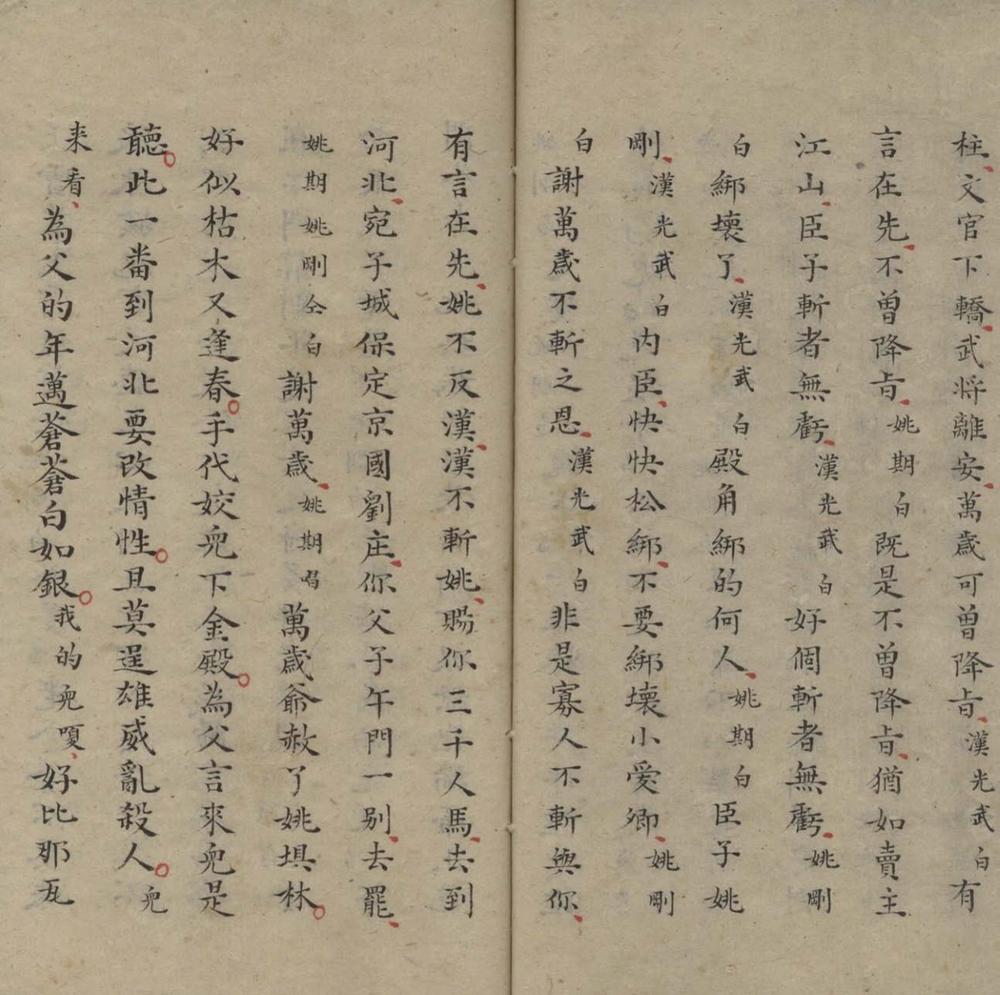 柱文官下轎武将離安萬歲可曾降旨漢光武白有
言在先不曾降旨姚期白既是不曾降旨猶如賣主
江山臣子斬者無虧漢光武白好個斬者無虧姚剛
白綁壞了漢光武白殿角綁的何人姚期白臣子姚
剛漢光武白内臣快快松綁不要綁壞小愛卿姚剛
白謝萬歲不斬之恩漢光武白非是寡人不斬與你
有言在先姚不反漢漢不斬姚賜你三千人馬去到
河北宛子城保定京國劉庄你父子午門一别去罷
姚期姚剛仝白謝萬歲姚期唱萬歲爺赦了姚埧林
好似枯木又逢春手代姣兒下金殿為父言來兒是
聽此一番到河北要改情性且莫逞雄威亂殺人兒
来看為父的年邁蒼蒼白如銀我的兒嗄好比那瓦